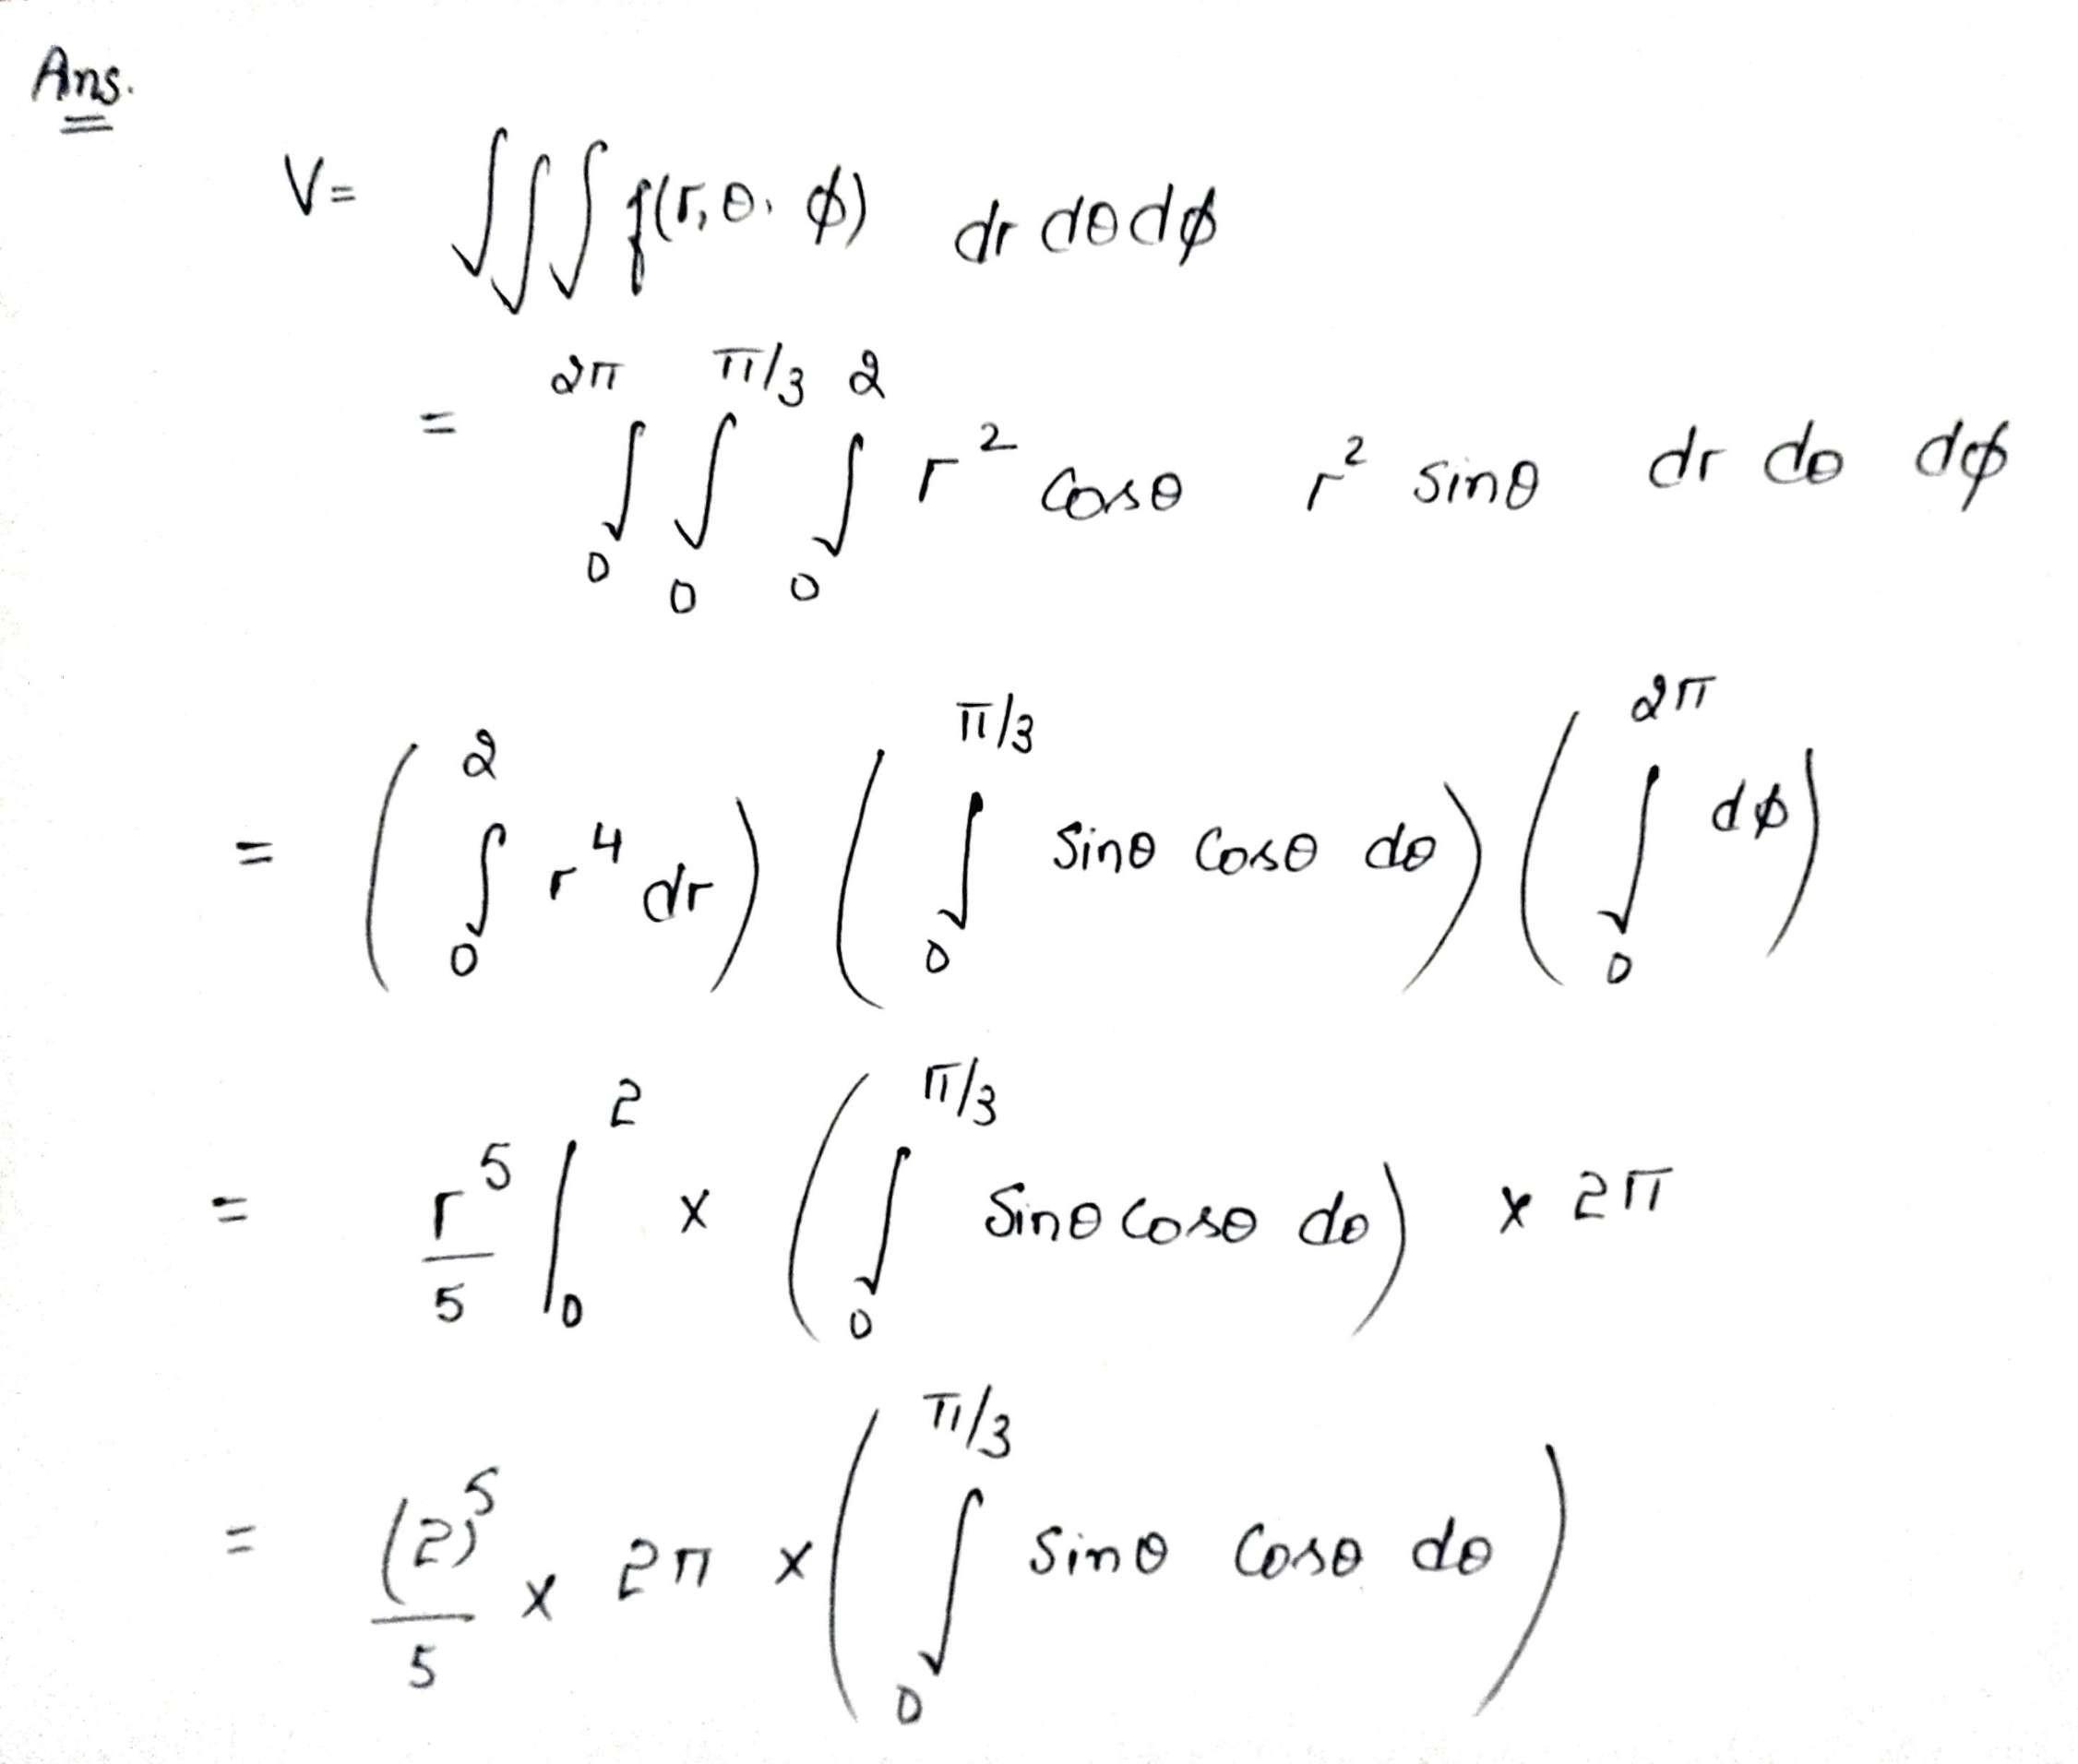 Ans.
V= ∫∫∫ f(r,θ,ϕ) dr dθdϕ
= ∫₀^{2π} ∫₀^{π/3} ∫₀^{2} r² cosθ r² sinθ dr dθ dϕ
= (∫₀^{2} r⁴ dr) (∫₀^{π/3} sinθ cosθ dθ) (∫₀^{2π} dϕ)
= r⁵/5 |₀^{2} × (∫₀^{π/3} sinθ cosθ dθ) × 2π
= (2)⁵/5 × 2π × (∫₀^{π/3} sinθ cosθ dθ)